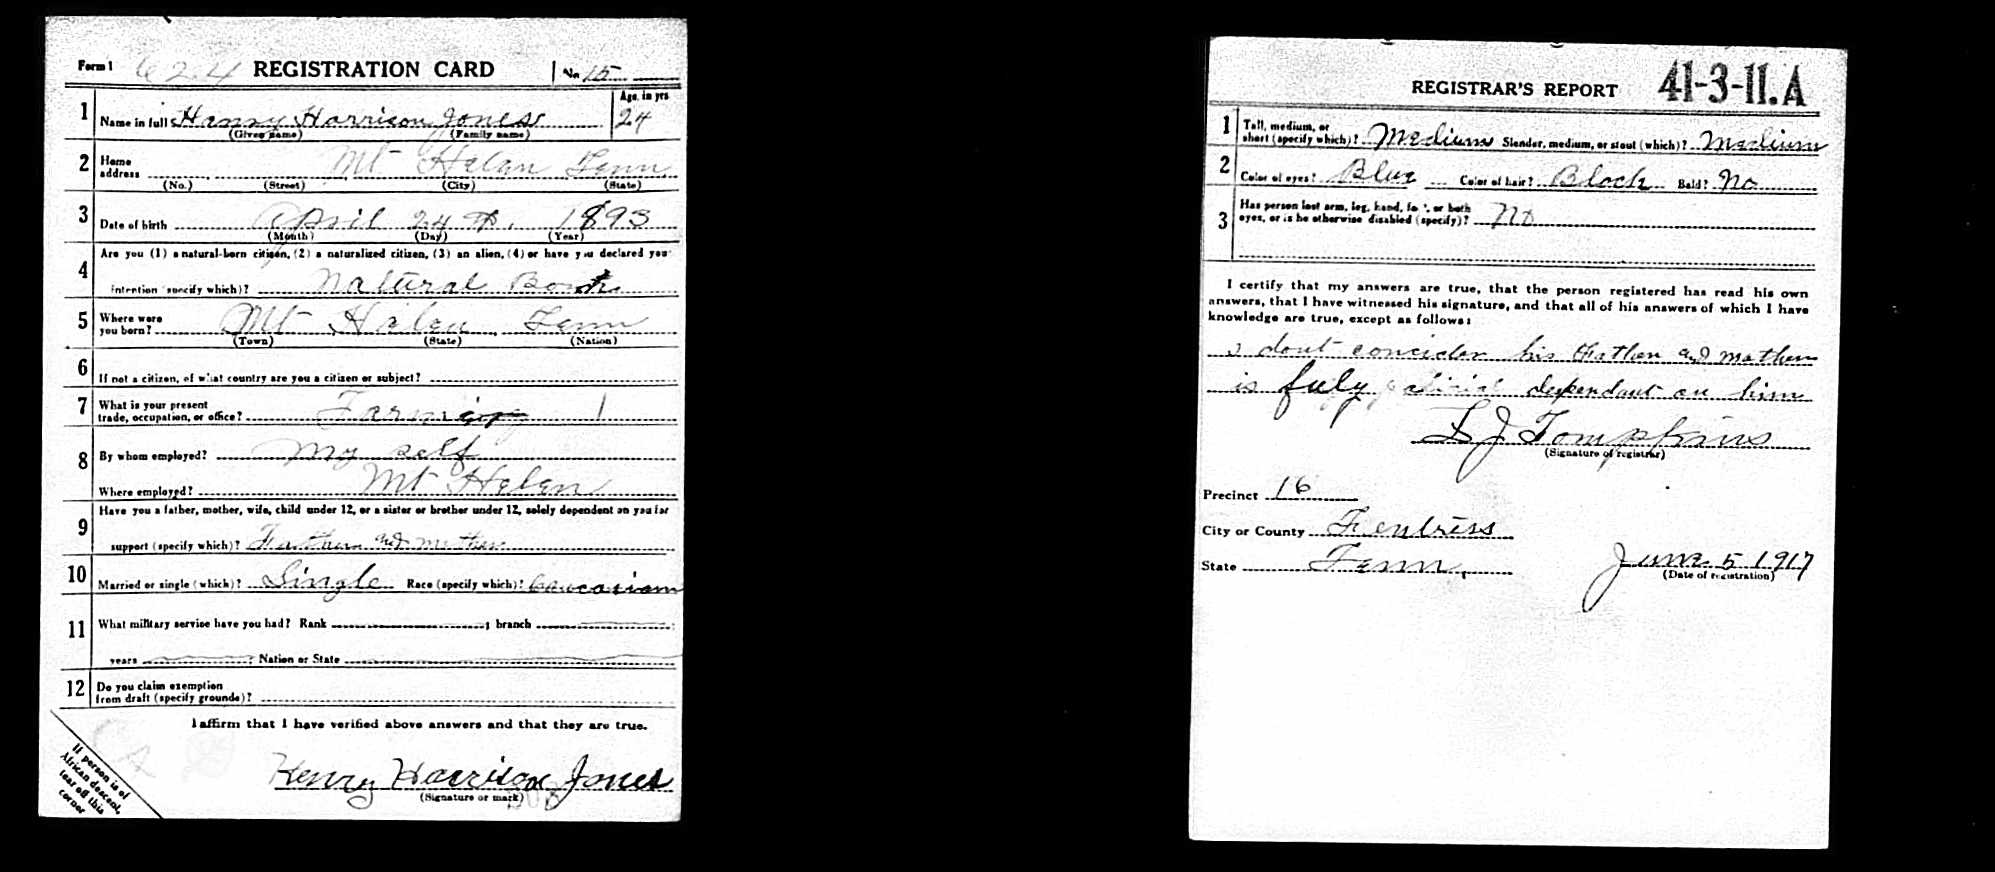 Form 1 624 REGISTRATION CARD No. 15
1 Name in full Henry Harrison Jones Age, in yrs 24
(Given name) (Family name)
2 Home address Mt Helen Tenn
(No.) (Street) (City) (State)
3 Date of birth April 24 th. 1893
(Month) (Day) (Year)
4 Are you (1) a natural-born citizen, (2) a naturalized citizen, (3) an alien, (4) or have you declared your
intention (specify which)? Natural Born
5 Where were you born? Mt Helen Tenn
(Town) (State) (Nation)
6 If not a citizen, of what country are you a citizen or subject?
7 What is your present trade, occupation, or office? Farming 1
8 By whom employed? My self
Where employed? Mt Helen
9 Have you a father, mother, wife, child under 12, or a sister or brother under 12, solely dependent on you for
support (specify which)? Father and mother
10 Married or single (which)? Single Race (specify which)? Caucasian
11 What military service have you had? Rank ; branch
years ; Nation or State
12 Do you claim exemption from draft (specify grounds)?
I affirm that I have verified above answers and that they are true.
Henry Harrison Jones
(Signature or mark)
If person is of
African descent,
tear off this
corner
REGISTRAR'S REPORT 41-3-11.A
1 Tall, medium, or short (specify which)? Medium Slender, medium, or stout (which)? Medium
2 Color of eyes? Blue Color of hair? Black Bald? No
3 Has person lost arm, leg, hand, foot, or both
eyes, or is he otherwise disabled (specify)? No
I certify that my answers are true, that the person registered has read his own
answers, that I have witnessed his signature, and that all of his answers of which I have
knowledge are true, except as follows:
I dont concider his Father and mother
is fuly dependant on him
L J Tompkins
(Signature of registrar)
Precinct 16
City or County Fentress
State Tenn. June 5 1917
(Date of registration)